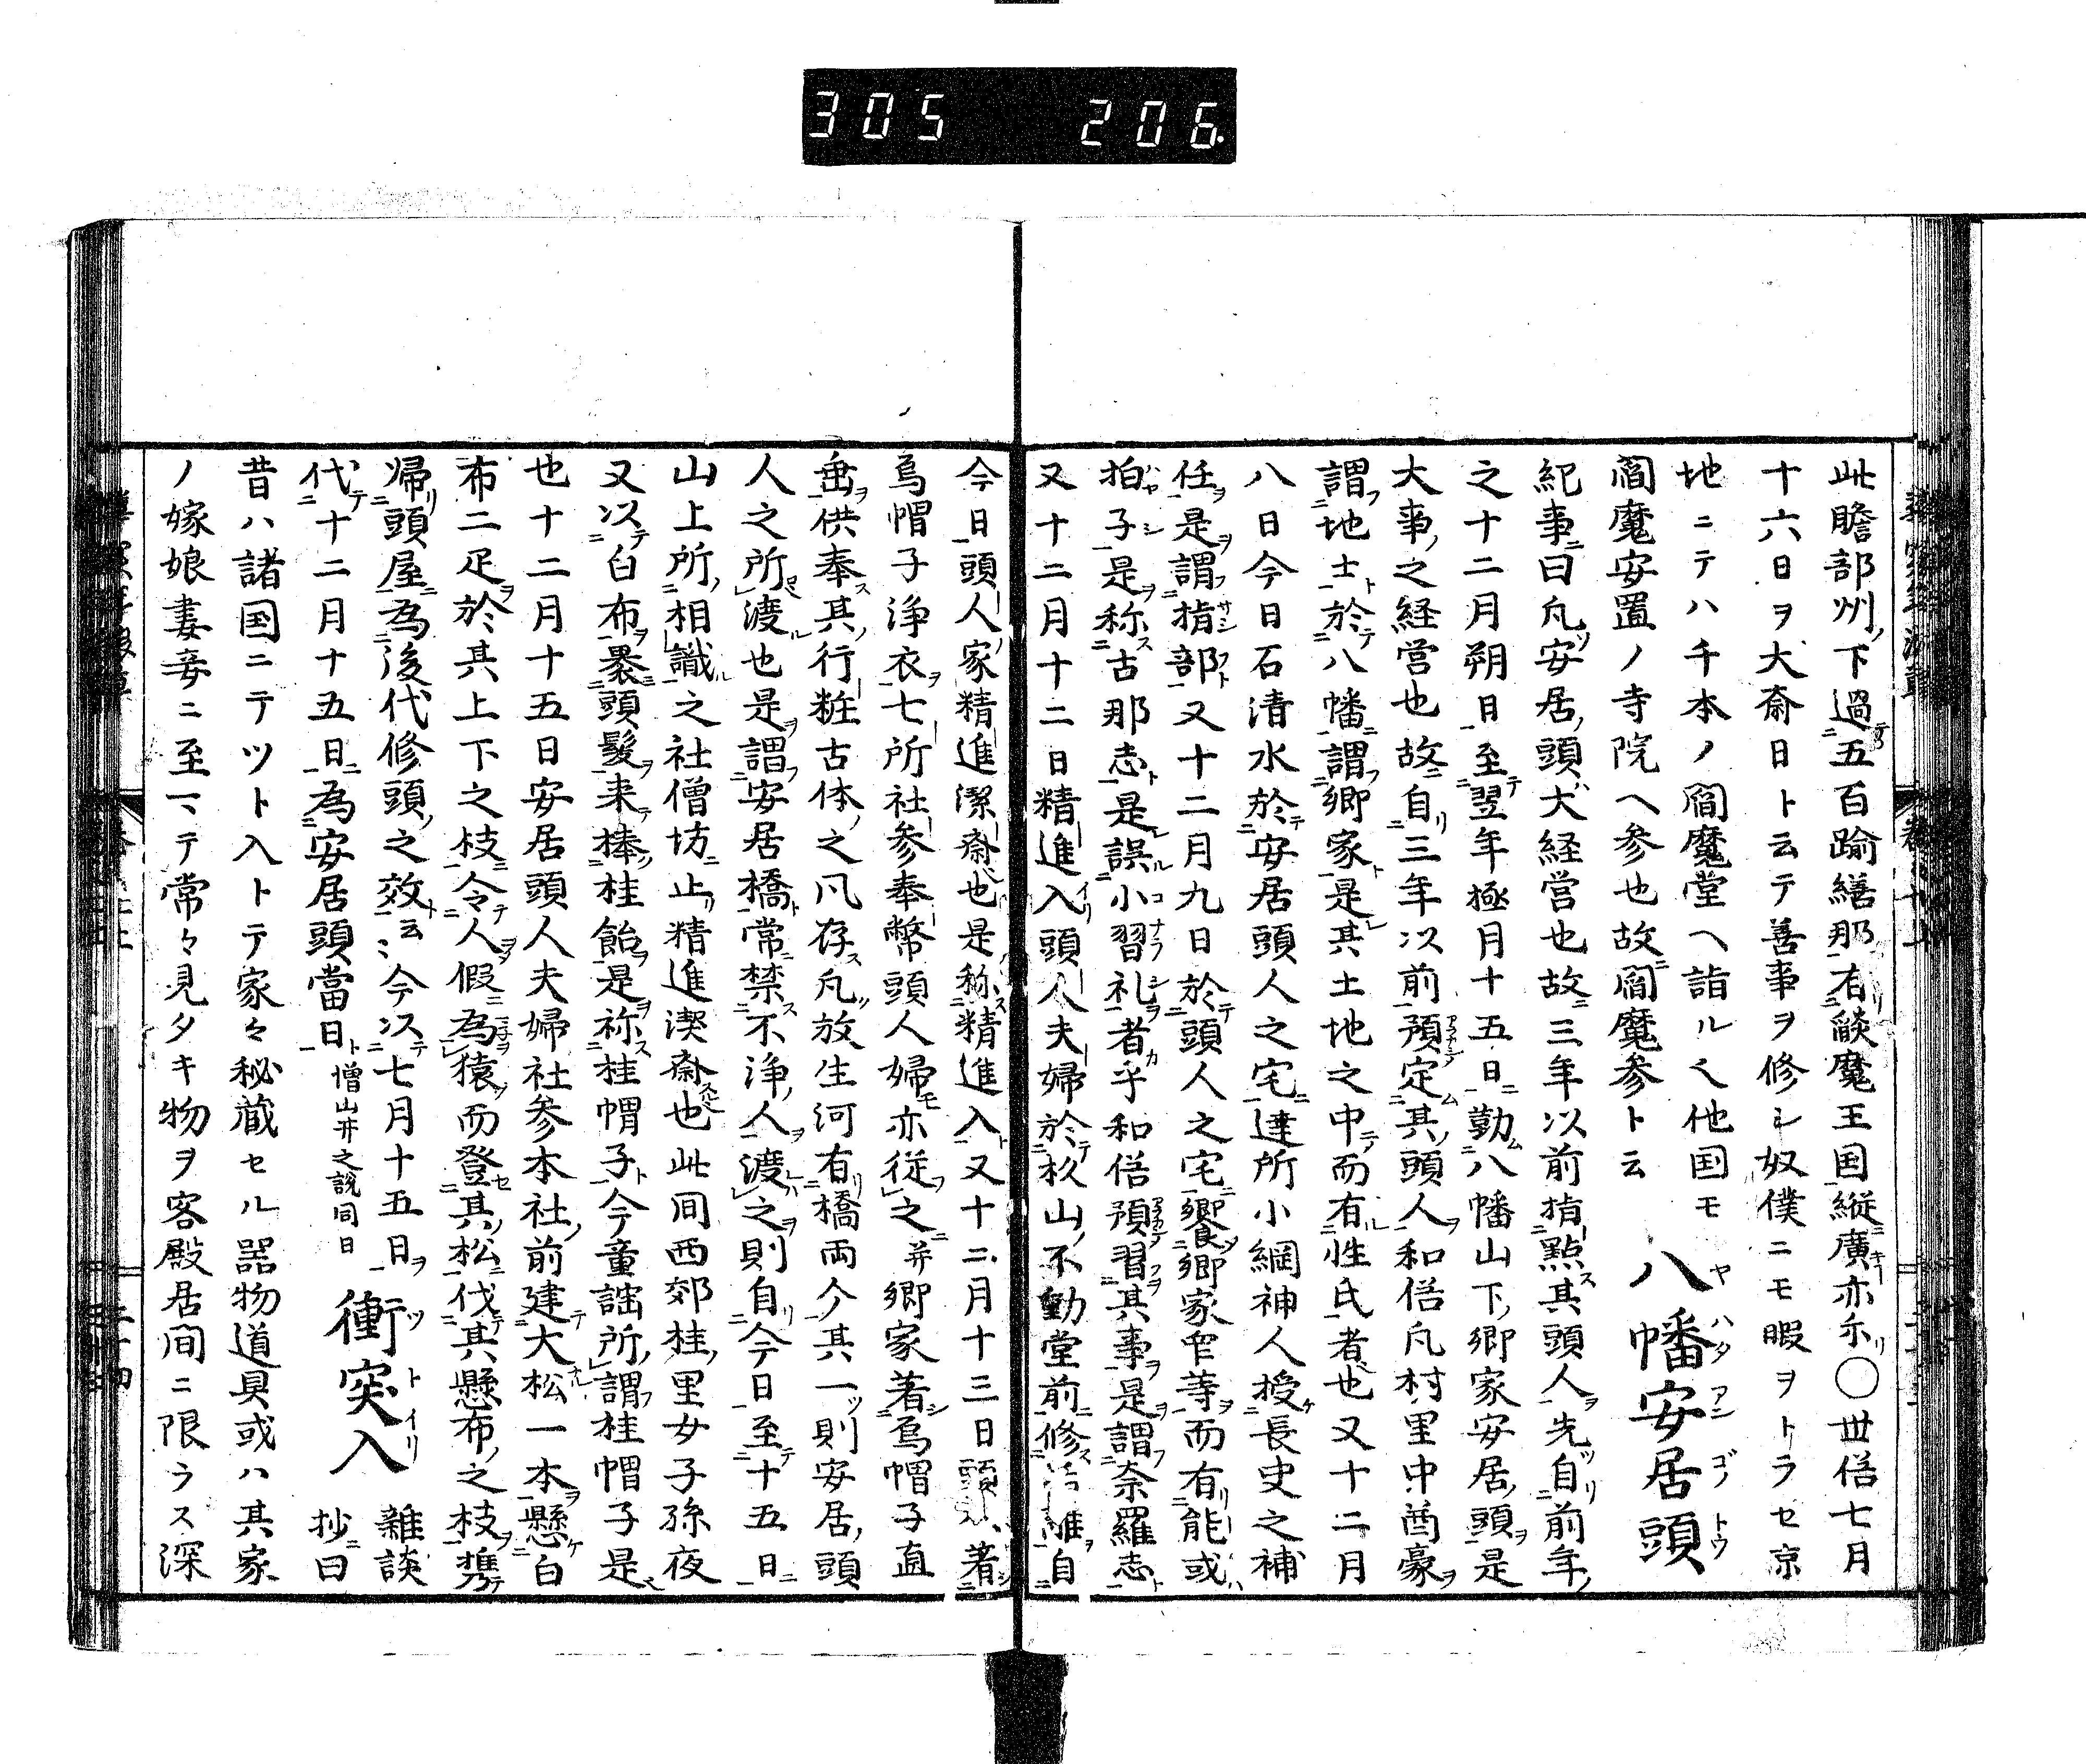 305 206.
此贍部州ノ下過テ五百踰繕那有リ㷔魔王国縦廣亦尓リ○世俗七月
十六日ヲ大斎日ト云テ善事ヲ修シ奴僕ニモ暇ヲトラセ京
地ニテハ千本ノ閻魔堂ヘ詣ルく他国モ
閻魔安置ノ寺院ヘ参也故ニ閻魔参ト云 八幡安居頭
紀事ニ曰凡安居ノ頭ハ大経営也故ニ三年以前指㸃ス其頭人ヲ先ツ自リ前年ノ
之十二月朔日至テ翌年極月十五日ニ勤ム八幡山下ノ郷家安居ノ頭ヲ是
大事ノ之経営也故ニ自リ三年以前預定ム其ノ頭人ヲ和俗凡村里中酋豪ヲ
謂フ地士ト於テ八幡ニ謂フ郷家ト是レ其土地之中テ而有ル性氏者也又十二月
八日今日石清水於テ安居頭人之宅ニ達所小綱神人授ケ長吏之補
任ヲ是ヲ謂フ指部ト又十二月九日於テ頭人之宅ニ饗ツ郷家等ヲ而有リ能或ハ
拍子是ヲ称ス古那志ト是レ誤ル小習礼ヲ者カ乎和俗預習フヲ其事ヲ是ヲ謂フ奈羅志ト
又十二月十二日精進入リ頭人夫婦於テ杦山ノ不動堂前ニ修ス自
今日頭人ノ家精進潔斎也是称ス精進入ト又十二月十三日頭人著シ
烏帽子浄衣ヲ七所社参奉幣頭人婦モ亦従フ之ニ并郷家著シ烏帽子直
垂ヲ供奉ス其ノ行粧古体ノ之凡存ス凡ツ放生河有リ橋両今其一ツ則安居ノ頭
人之所渡ル也是ヲ謂フ安居橋ト常ニ禁ス不浄ノ人ヲ渡之ヲ則自リ今日至テ十五日ニ
山上所ノ相識ル之社僧坊ニ止リ精進潔斎也此間西郊桂ノ里女子孫夜
又以テ白布ヲ裹頭髪ヲ来テ捧ノ桂飴ヲ是ヲ称ス桂帽子ト今童謡所ノ謂フ桂帽子是
也十二月十五日安居頭人夫婦社参本社ノ前建テ大松一本ヲ懸ケ白
布二疋ヲ於其上下之枝ニ令テ人ヲ假ニ為猿而登セ其ノ松ニ伐テ其懸布ノ之枝ヲ携テ
帰リ頭屋ニ為後代修頭ノ之效ト云々今以テ七月十五日ヲ
代テ十二月十五日ニ為安居頭當日ト 憎山井之説同日 衝突入 雑談抄ニ曰
昔ハ諸国ニテツト入トテ家々秘蔵セル器物道具或ハ其家
ノ嫁娘妻妾ニ至マテ常々見タキ物ヲ客殿居間ニ限ラス深